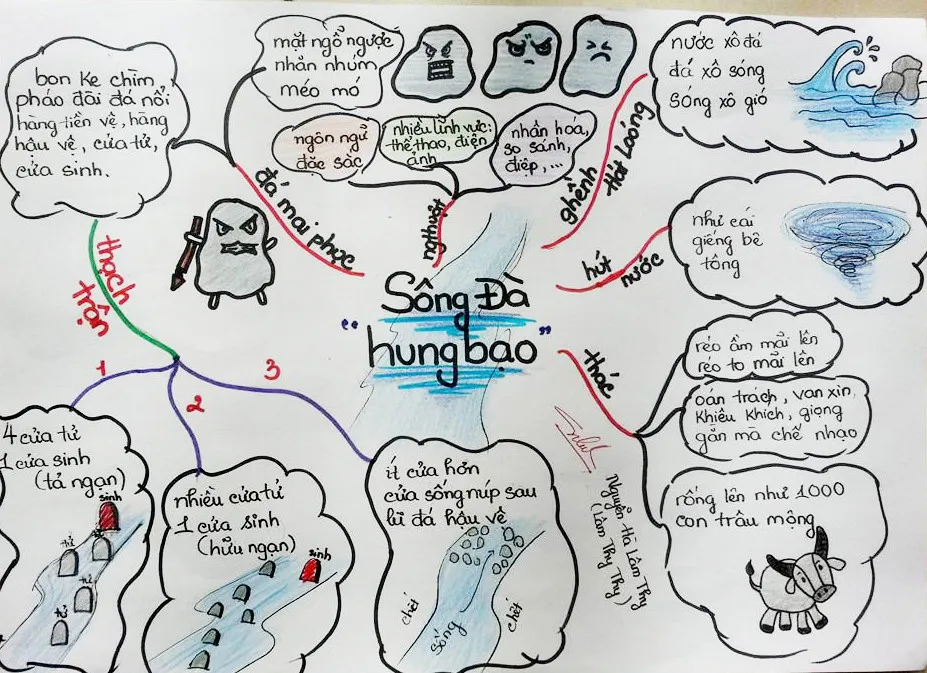 bon ke chìm,
pháo đài đá nổi
hàng tiền vệ, hàng
hậu vệ, cửa tử,
cửa sinh.
mặt ngỗ ngược
nhăn nhúm
méo mó
ngôn ngữ
đặc sắc
nhiều lĩnh vực:
thể thao, điện
ảnh
nhân hóa,
so sánh,
điệp, ...
nước xô đá
đá xô sóng
Sóng xô gió
đá mai phục
ngthuật
ghềnh
Hát Loóng
hút
nước
như cái
giếng bê
tông
Sông Đà
"hung bạo"
thạch
trận
1
2
3
thác
réo ầm mãi lên
réo to mãi lên
oán trách, van xin,
Khiêu Khích, giọng
gằn mà chế nhạo
rống lên như 1000
con trâu mộng
4 cửa tử
1 cửa sinh
(tả ngạn)
sinh
tử
tử
tử
nhiều cửa tử
1 cửa sinh
(hữu ngạn)
sinh
ít cửa hơn
cửa sống núp sau
lũ đá hậu vệ
chết
sống
chết
Nguyễn Hà Lâm Thy
(Lâm Thy Thy)